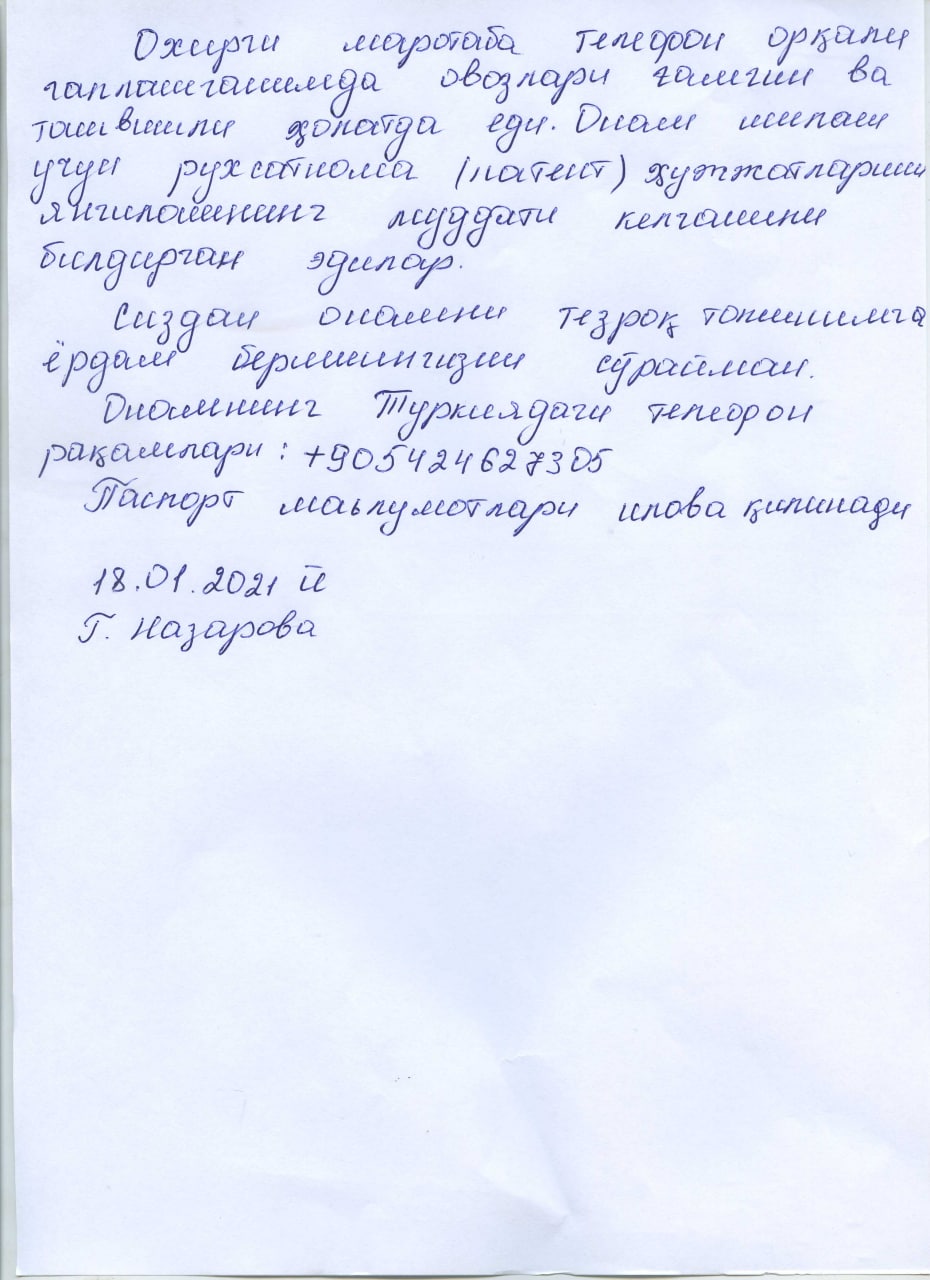 Охирги маротаба телефон орқали
гаплашганимда овозлари ғамгин ва
ташвишли ҳолатда еди. Онам ишлаш
учун рухсатнома (патент) ҳужжатларини
янгилашнинг муддати келганини
билдирган эдилар.
Сиздан онамни тезроқ топишимга
ёрдам беришингизни сўрайман.
Онамнинг Туркиядаги телефон
рақамлари: +905424627305
Паспорт маълумотлари илова қилинади
18.01.2021 й
Г. Назарова